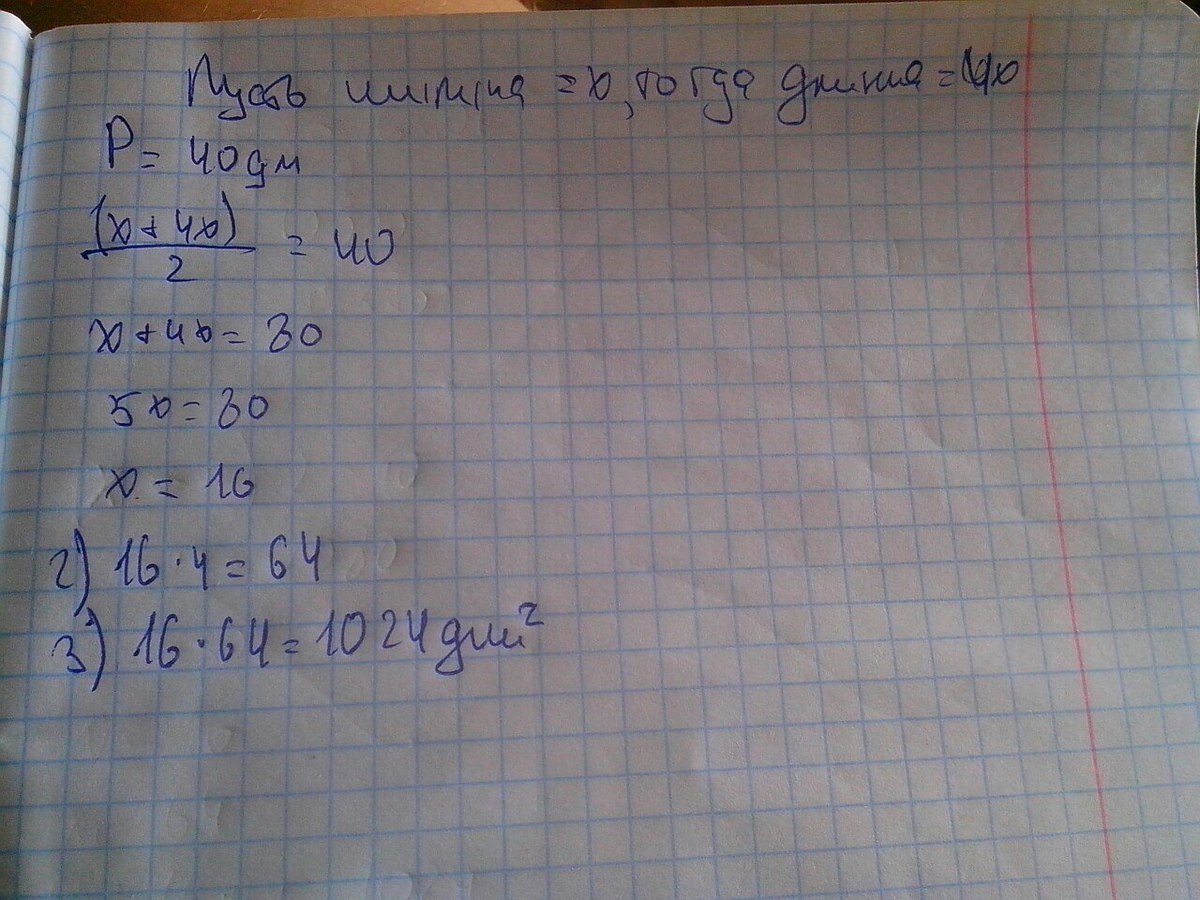 Пусть ширина = x, тогда длина = 4x
P = 40 дм
(x + 4x)
2
= 40
x + 4x = 80
5x = 80
x = 16
2) 16 · 4 = 64
3) 16 · 64 = 1024 дм²